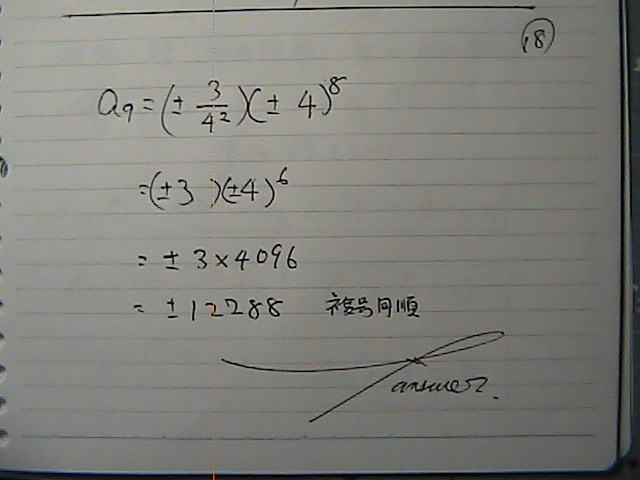 18
a₉ = (± 3/4²)(± 4)⁸
= (±3 )(±4)⁶
= ± 3 × 4096
= ± 12288 複号同順
answer.